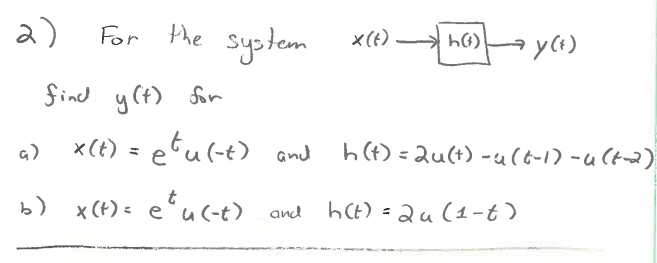 2) For the system x(t) → h(t) → y(t)
find y(t) for
a) x(t) = e^t u(-t) and h(t) = 2u(t) - u(t-1) - u(t-2)
b) x(t) = e^t u(-t) and h(t) = 2u(1-t)